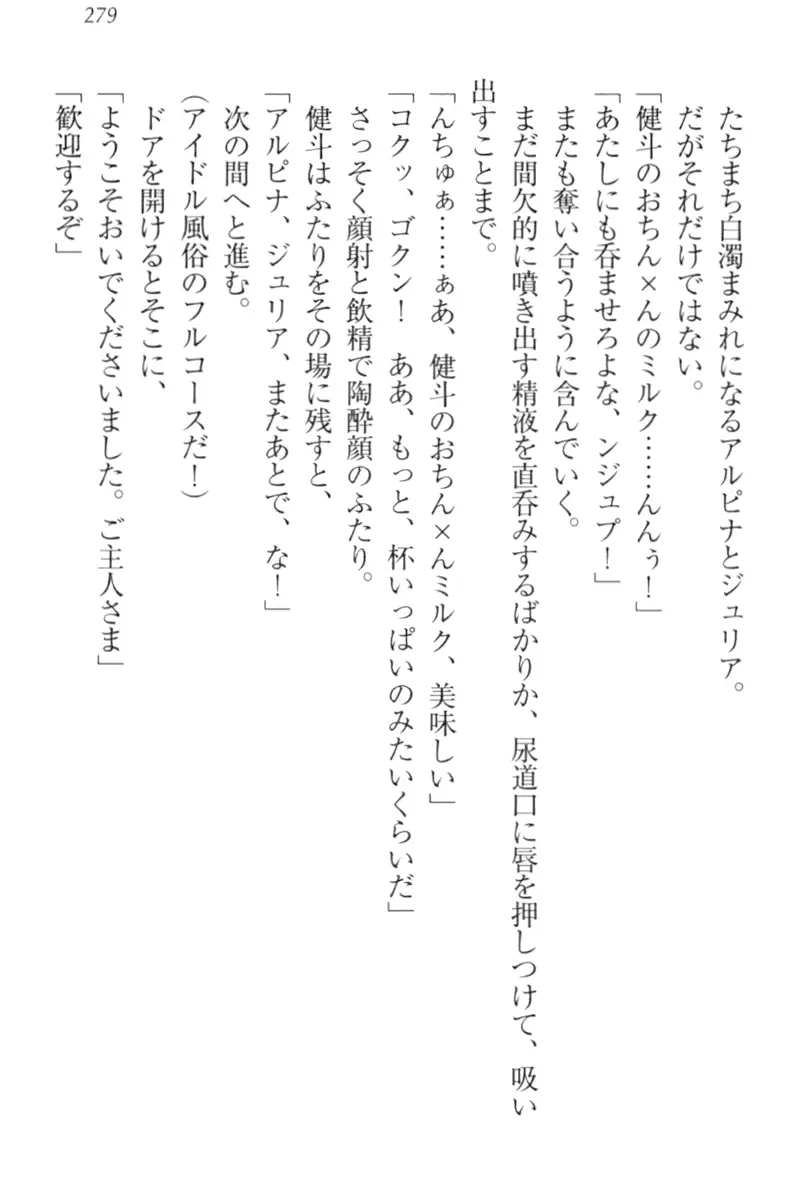 279
たちまち白濁まみれになるアルピナとジュリア。
だがそれだけではない。
「健斗のおちん×んのミルク……んんぅ！」
「あたしにも呑ませろよな、ンジュプ！」
またも奪い合うように含んでいく。
まだ間欠的に噴き出す精液を直呑みするばかりか、尿道口に唇を押しつけて、吸い
出すことまで。
「んちゅぁ……ぁあ、健斗のおちん×んミルク、美味しい」
「コクッ、ゴクン！　ああ、もっと、杯いっぱいのみたいくらいだ」
さっそく顔射と飲精で陶酔顔のふたり。
健斗はふたりをその場に残すと、
「アルピナ、ジュリア、またあとで、な！」
次の間へと進む。
（アイドル風俗のフルコースだ！）
ドアを開けるとそこに、
「ようこそおいでくださいました。ご主人さま」
「歓迎するぞ」